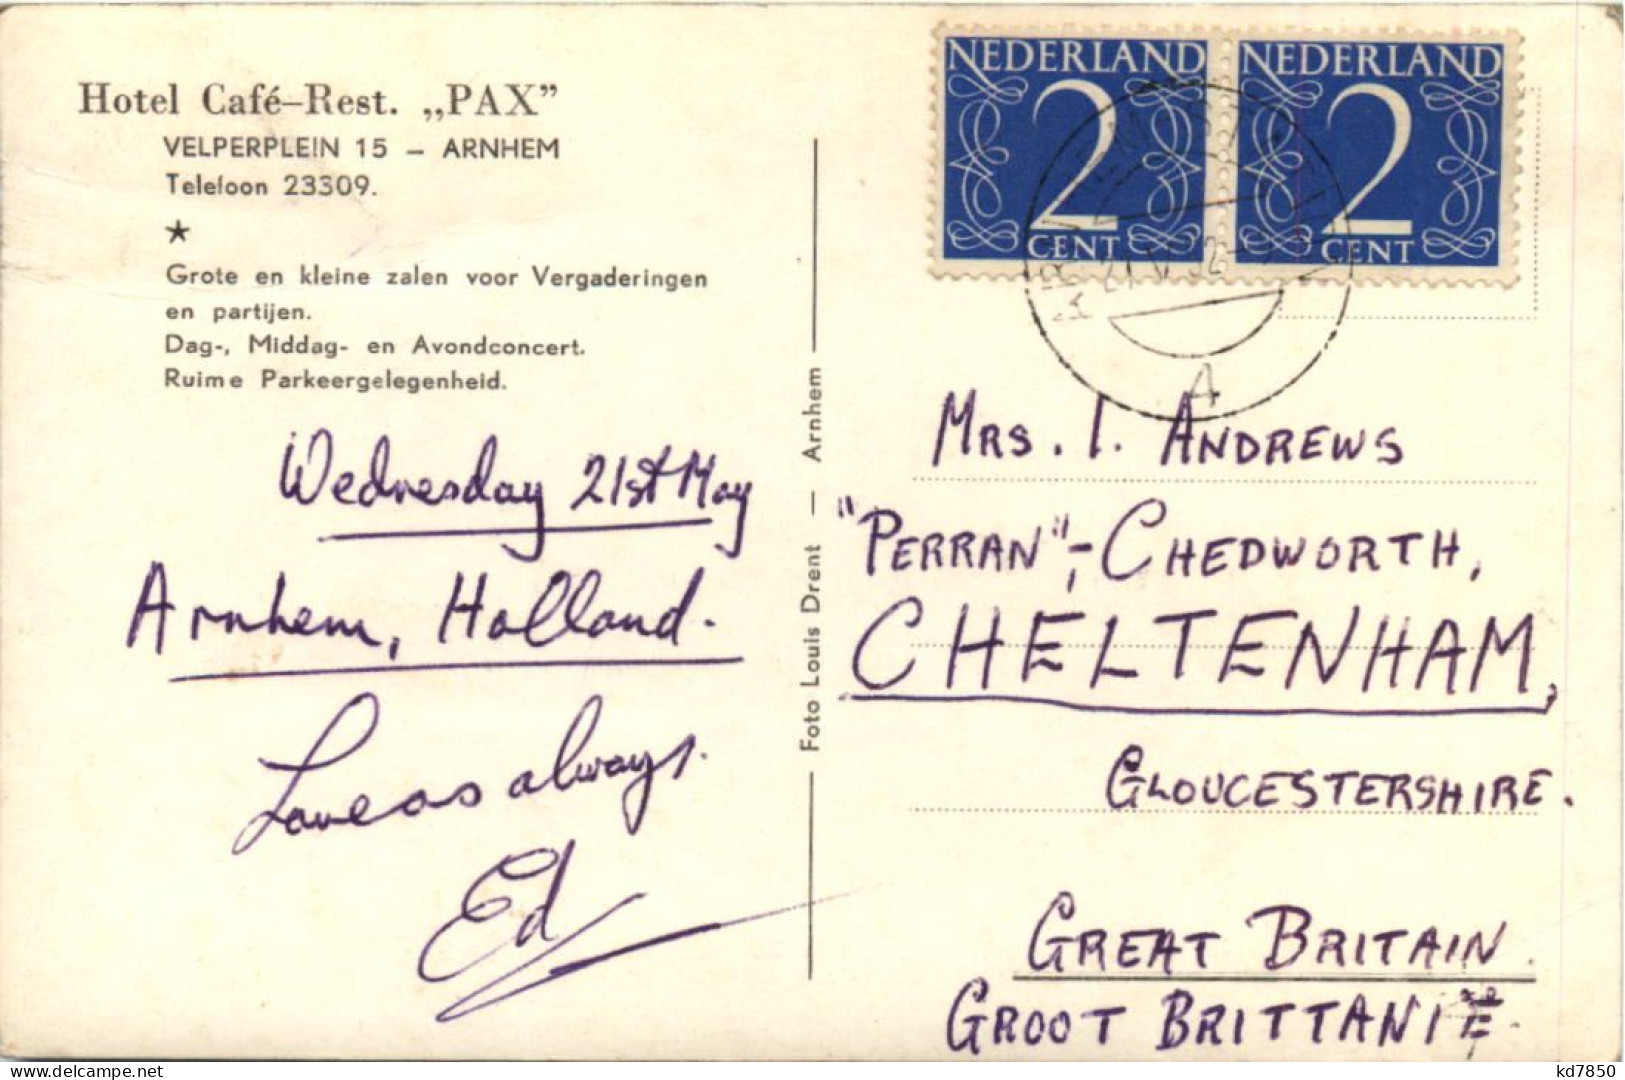 Hotel Café–Rest. „PAX”
VELPERPLEIN 15 – ARNHEM
Telefoon 23309.
★
Grote en kleine zalen voor Vergaderingen
en partijen.
Dag-, Middag- en Avondconcert.
Ruime Parkeergelegenheid.
Wednesday 21st May
Arnhem, Holland.
Love as always.
Ed
Foto Louis Drent — Arnhem
NEDERLAND
2
CENT
NEDERLAND
2
CENT
A
MRS. I. ANDREWS
"PERRAN",- CHEDWORTH,
CHELTENHAM,
GLOUCESTERSHIRE.
GREAT BRITAIN.
GROOT BRITTANIË.
kd7850